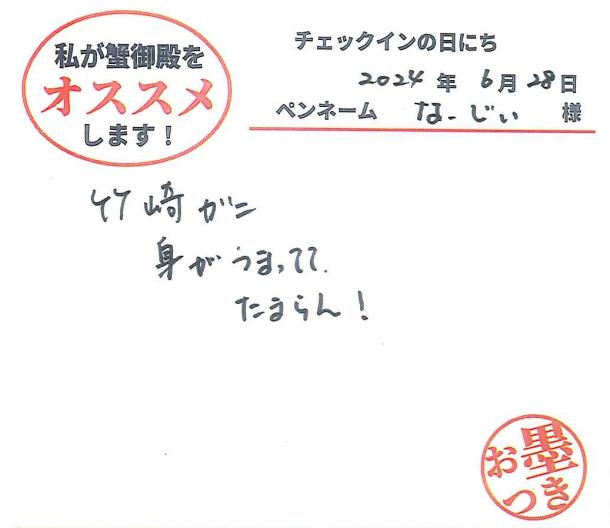 私が蟹御殿を
オススメ
します！
チェックインの日にち
2024年6月28日
ペンネーム なーじぃ 様
竹崎がに
身がうまってて、
たまらん！
お墨
つき